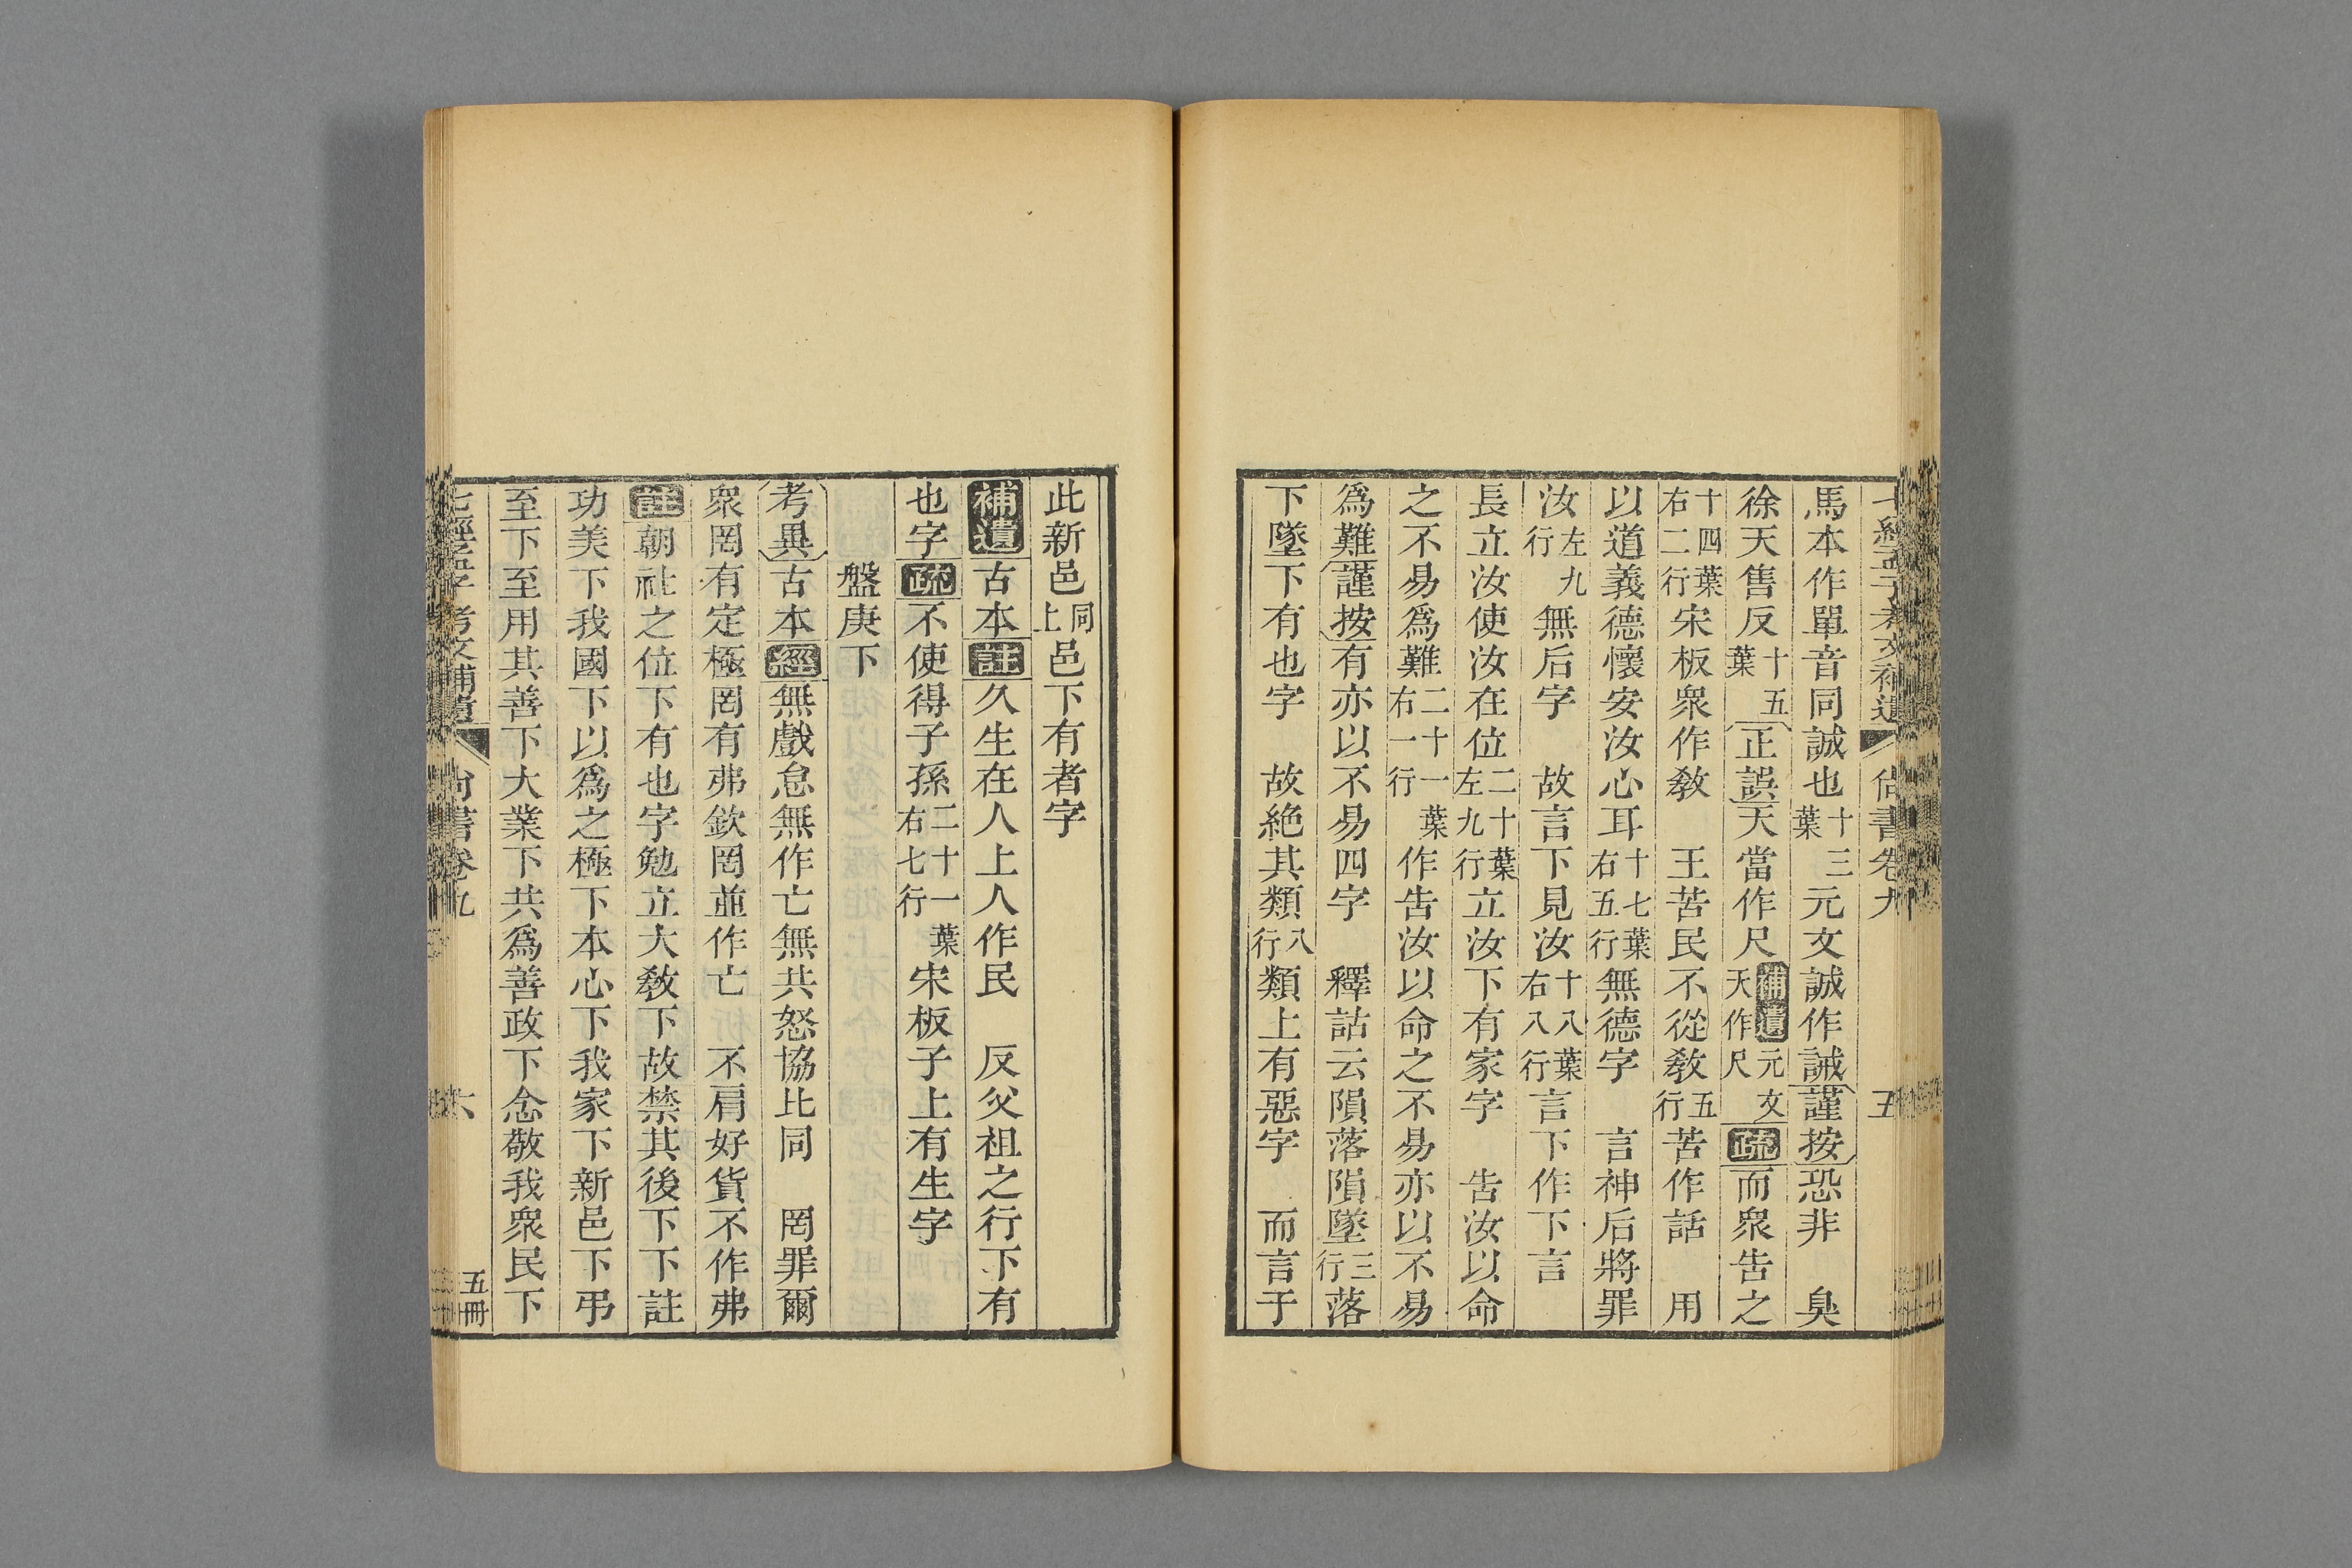 七經孟子考文補遺 尚書卷九 五
馬本作單音同誠也十三葉元文誠作誡謹按恐非 臭
徐天售反十五葉正誤天當作尺補遺元文天作尺疏而衆告之
十四葉右二行宋板衆作敎 王苦民不從敎五行苦作話 用
以道義德懷安汝心耳十七葉右五行無德字 言神后將罪
汝左九行無后字 故言下見汝十八葉右八行言下作下言
長立汝使汝在位二十葉左九行立汝下有家字 告汝以命
之不易爲難二十一葉右一行作告汝以命之不易亦以不易
爲難謹按有亦以不易四字 釋詁云隕落隕墜三行落
下墜下有也字 故絶其類八行類上有惡字 而言于
此新邑同上邑下有者字
補遺古本註久生在人上人作民 反父祖之行下有
也字疏不使得子孫二十一葉右七行宋板子上有生字
盤庚下
考異古本經無戲怠無作亡無共怒協比同 罔罪爾
衆罔有定極罔有弗欽罔並作亡 不肩好貨不作弗
註朝社之位下有也字勉立大敎下故禁其後下下註
功美下我國下以爲之極下本心下我家下新邑下弔
至下至用其善下大業下共爲善政下念敬我衆民下
七經孟子考文補遺 尚書卷九 六 五冊